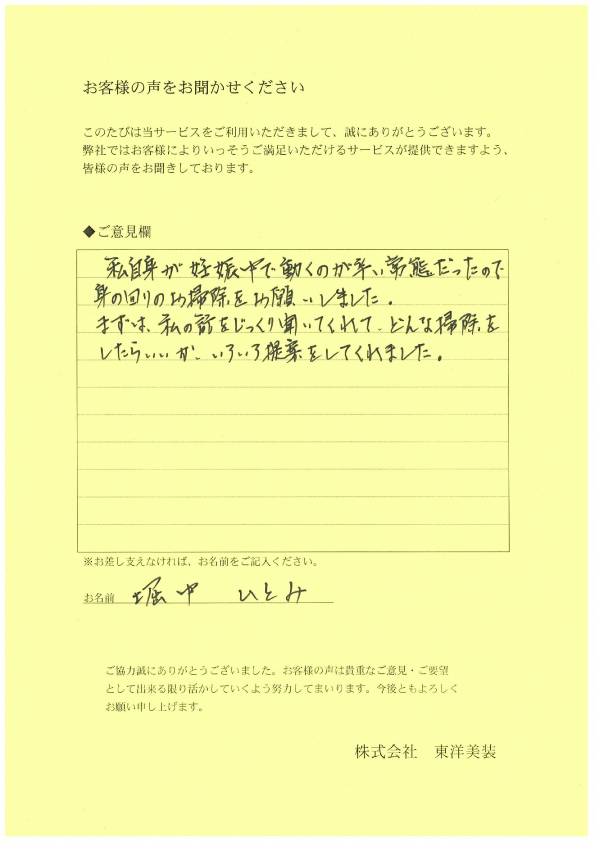 お客様の声をお聞かせください
このたびは当サービスをご利用いただきまして、誠にありがとうございます。
弊社ではお客様によりいっそうご満足いただけるサービスが提供できますよう、
皆様の声をお聞きしております。
◆ご意見欄
私自身が妊娠中で動くのが辛い常態だったので
身の回りのお掃除をお願いしました。
まずは、私の話をじっくり聞いてくれて、どんな掃除を
したらいいか、いろいろ提案をしてくれました。
※お差し支えなければ、お名前をご記入ください。
お名前 堀中 ひとみ
ご協力誠にありがとうございました。お客様の声は貴重なご意見・ご要望
として出来る限り活かしていくよう努力してまいります。今後ともよろしく
お願い申し上げます。
株式会社 東洋美装